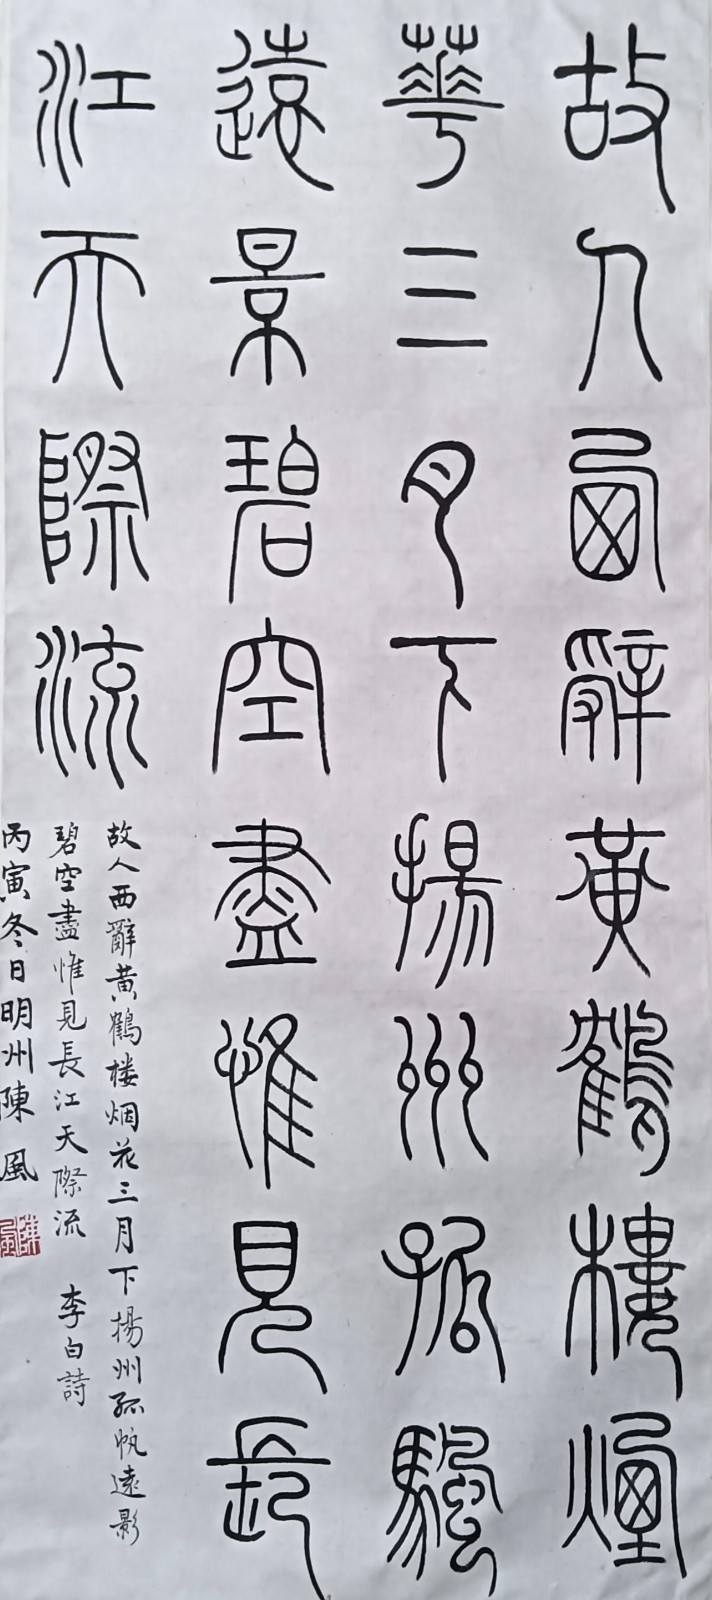 故人西辭黃鶴樓煙
華三月下揚州孤颿
遠景碧空盡惟見長
江天際流
故人西辭黄鶴楼烟花三月下揚州孤帆遠影
碧空盡惟見長江天際流 李白詩
丙寅冬日明州陳風